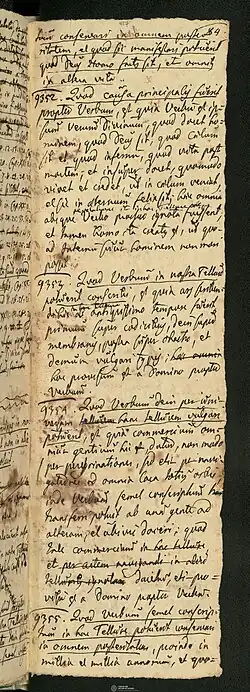 tuit conservari in omnem posteri-
tatem, et quod sic manifestari potuerit
quod Deus Homo factus sit, et omnia
in altera vita
9352. Quod causa principalis fuerit
propter Verbum, et quia Verbum est ip-
sum Verum Divinum, quod docet ho-
minem, quod Deus sit, quod caelum
sit et quod infernum, quod vita post
mortem, et insuper docet, quomodo
vivet et credet, ut in caelum veniat,
et sic in aeternum felix sit; haec omnia
absque Verbo prorsus ignota fuissent,
et tamen homo ita creatus est, ut quo-
ad Internum suum hominem non mori
possit
9353. Quod Verbum in nostra Tellure
potuerit conscribi, est quia ars scriben-
di ab antiquissimo tempore fuerit
primum super codicibus, dein super
membranis, postea super chartis, et
demum vulgari typis; 
hoc provisum est a Domino propter
Verbum
9354. Quod Verbum dein per univer-
sam hanc tellurem vulgari
potuerit, est quia commercium om-
nium gentium hic est datum, non modo
per peregrinationes, sed etiam per navi-
gationes ad omnia loca totius orbis;
inde Verbum semel conscriptum
transferri potuit ab una gente ad
alteram, et ubivis doceri; quod
tale commercium in hac tellure
et in aliis
telluribus detur, etiam pro-
visum est a Domino propter Verbum.
9355. Quod Verbum semel conscrip-
tum in hac Tellure potuerit conservari
in omnem posteritatem, proinde in
millia et millia annorum, et quo-